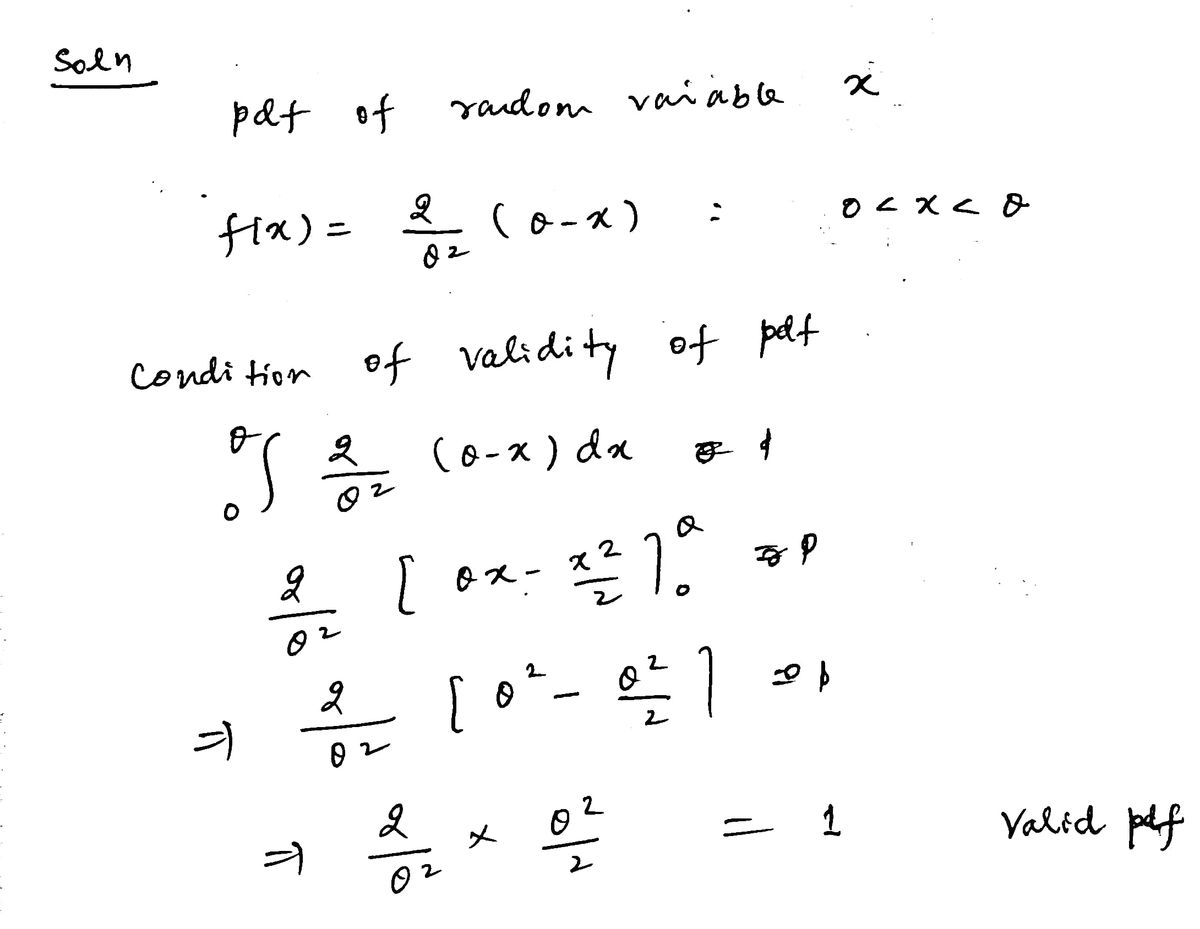 Soln
pdf of random variable x
f(x) = 2/θ² (θ-x) : 0 < x < θ
Condition of validity of pdf
₀∫^θ 2/θ² (θ-x) dx = 1
2/θ² [θx - x²/2]₀^θ
⇒ 2/θ² [θ² - θ²/2]
⇒ 2/θ² × θ²/2 = 1 Valid pdf